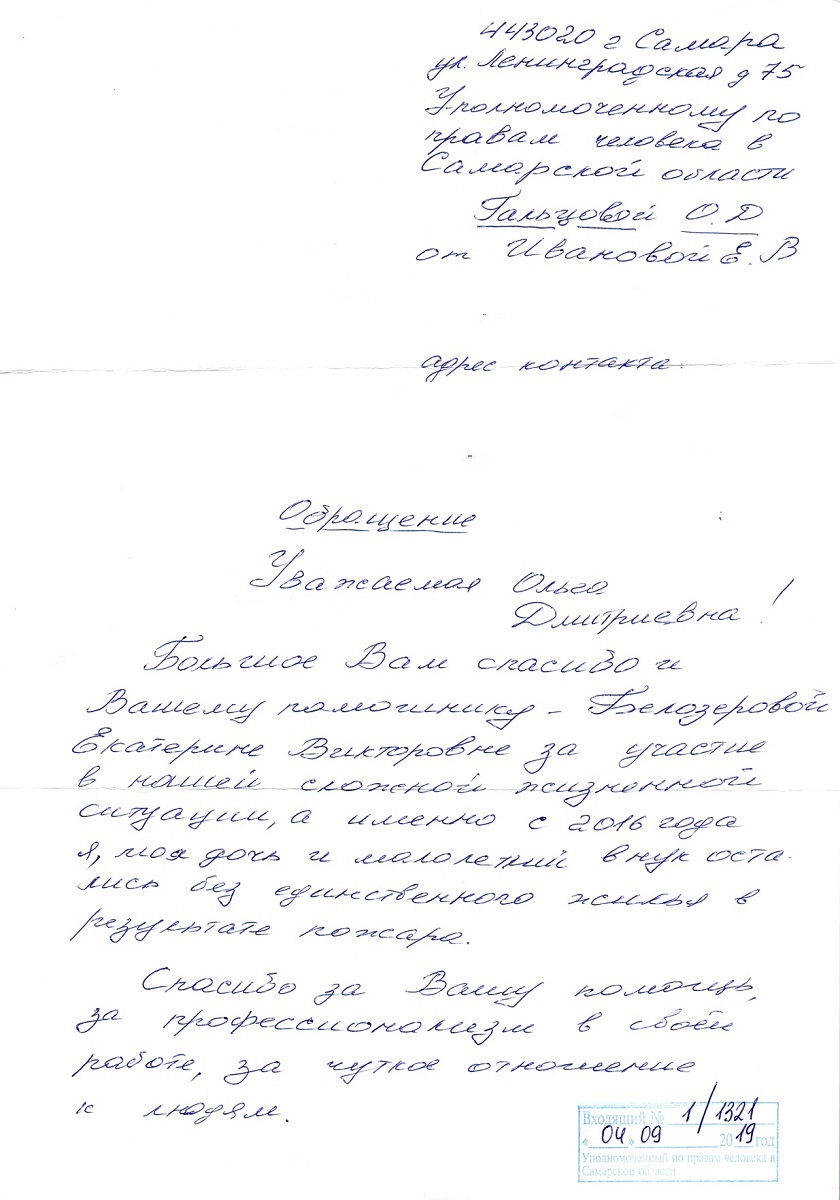 443020 г Самара
ул. Ленинградская д 75
Уполномоченному по
правам человека в
Самарской области
Гальцовой О.Д
от Ивановой Е.В
адрес контакта
Обращение
Уважаемая Ольга
Дмитриевна!
Большое Вам спасибо и
Вашему помощнику - Белозеровой
Екатерине Викторовне за участие
в нашей сложной жизненной
ситуации, а именно с 2016 года
я, моя дочь и малолетний внук оста-
лись без единственного жилья в
результате пожара.
Спасибо за Вашу помощь,
за профессионализм в своей
работе, за чуткое отношение
к людям.
Входящий № 1/1321
«04» 09 2019 год
Уполномоченный по правам человека в
Самарской области